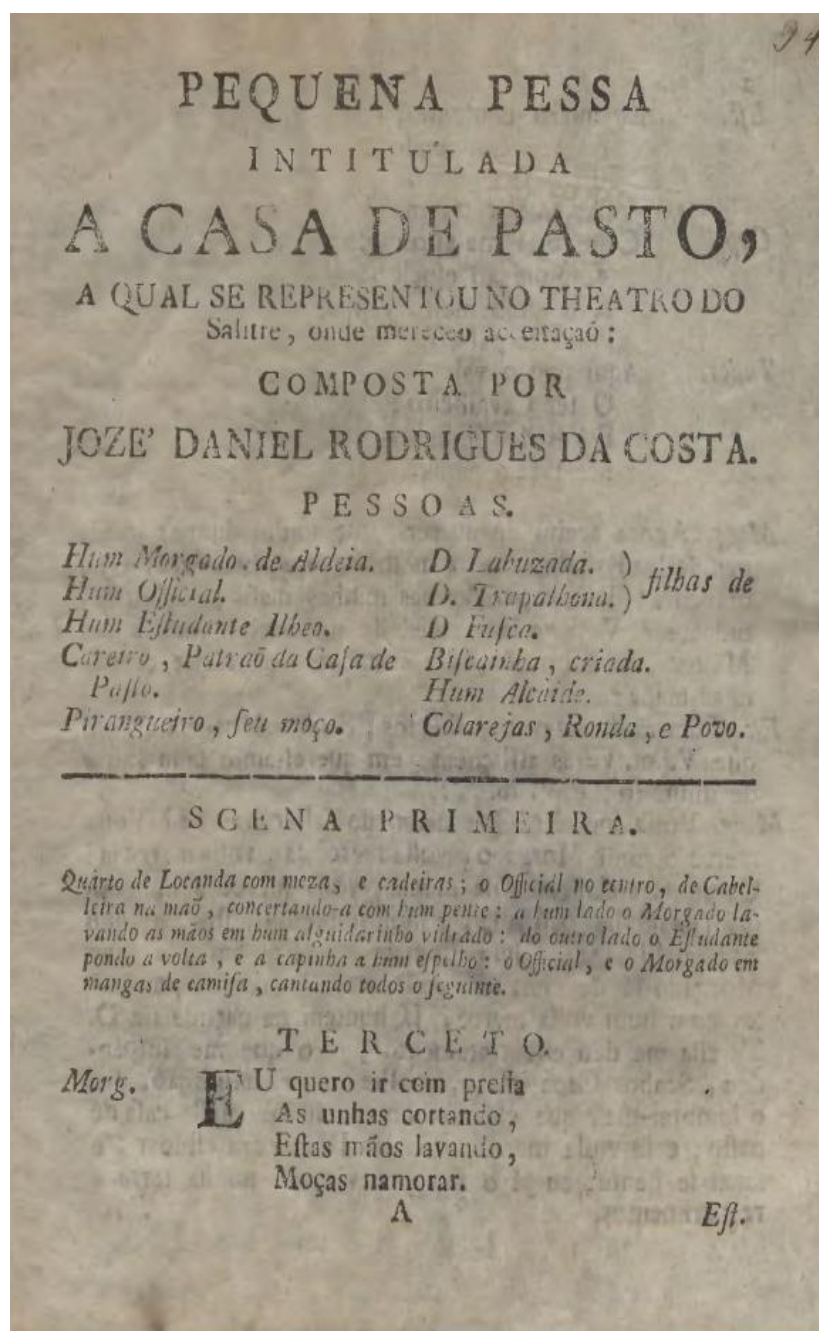 94
PEQUENA PESSA
INTITULADA
A CASA DE PASTO,
A QUAL SE REPRESENTOU NO THEATRO DO
Salitre, onde mereceo acceitaçaõ:
COMPOSTA POR
JOZE' DANIEL RODRIGUES DA COSTA.
PESSOAS.
Hum Morgado de Aldeia.
Hum Official.
Hum Eſtudante Ilheo.
Careiro, Patraõ da Caſa de
Paſto.
Pirangueiro, ſeu moço.
D. Labuzada. )
D. Trapalhona. ) filhas de
D Fuſca.
Biſcainha, criada.
Hum Alcaide.
Colarejas, Ronda, e Povo.
SCENA PRIMEIRA.
Quarto de Locanda com meza, e cadeiras; o Official no centro, de Cabel-
leira na maõ, concertando-a com hum pente: a hum lado o Morgado la-
vando as mãos em hum alguidarinho vidrado: do outro lado o Eſtudante
pondo a volta, e a capinha a hum eſpelho: o Official, e o Morgado em
mangas de camiſa, cantando todos o ſeguinte.
TERCETO.
Morg. EU quero ir com preſſa
As unhas cortando,
Eſtas mãos lavando,
Moças namorar.
A Eſt.